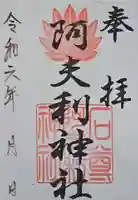 奉拝
阿夫利神社
令和六年 月 日